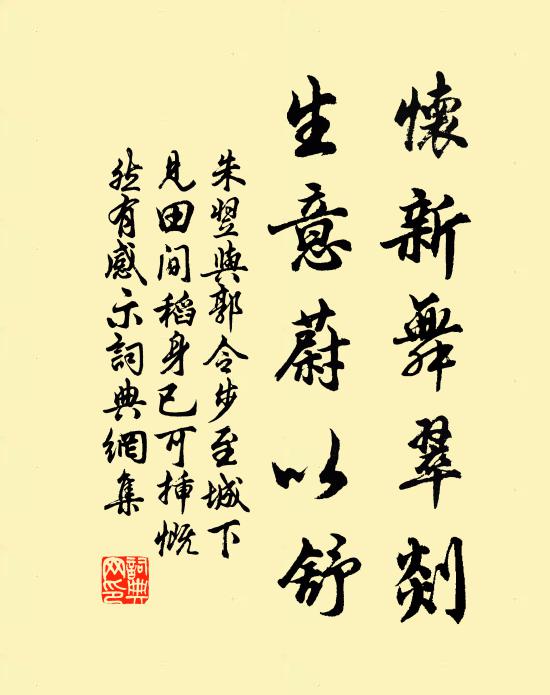 懷新舞翠剡
生意蔚以舒
朱翌與郭令步至城下
見田間稻身已可插慨
然有感示詞典網集
詞典網印